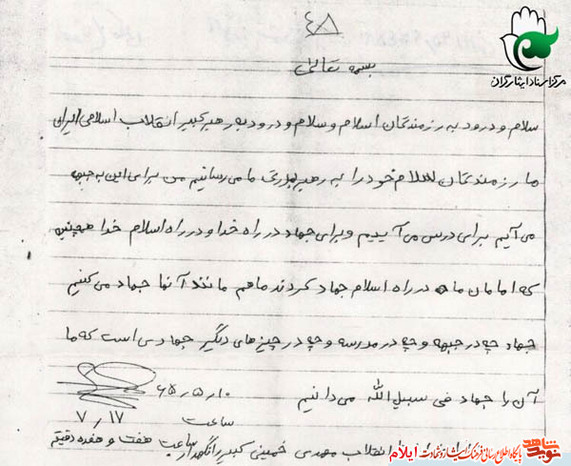 ۴۸
بسمه تعالی
مرکز اسناد ایثارگران
سلام و درود به رزمندگان اسلام و سلام و درود به رهبر کبیر انقلاب اسلامی ایران
ما رزمندگان سلام خود را به رهبر می رسانیم من برای این به جبهه
می آیم برای درس می آییم و برای جهاد در راه خدا و در راه اسلام خدا همچنین
که امامان ما در راه اسلام جهاد کردند ما هم مانند آنها جهاد می کنیم
جهاد چه در جبهه و چه در مدرسه و چه در چیزهای دیگر جهادی است که ما
آن را جهاد فی سبیل الله می دانیم
۶۵ ر ۵ ر ۱۰
ساعت ۷ / ۱۷
انقلاب مهدی خمینی کبیر را نگهدار ساعت هفت و هفده دقیقه
نوید شاهد
پایگاه اطلاع رسانی فرهنگ ایثار و شهادت ایلام